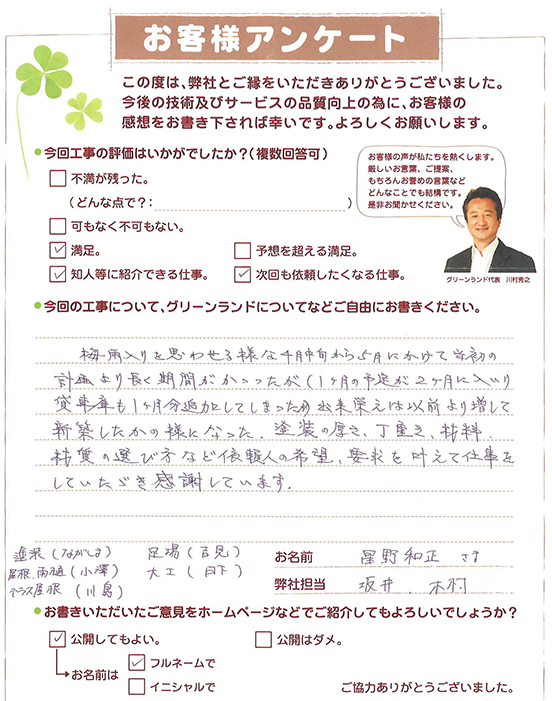 お客様アンケート
この度は、弊社とご縁をいただきありがとうございました。
今後の技術及びサービスの品質向上の為に、お客様の
感想をお書き下されば幸いです。よろしくお願いします。
●今回工事の評価はいかがでしたか？（複数回答可）
不満が残った。
（どんな点で？： ）
可もなく不可もない。
✓満足。 予想を超える満足。
✓知人等に紹介できる仕事。 ✓次回も依頼したくなる仕事。
お客様の声が私たちを熱くします。
厳しいお言葉、ご提案、
もちろんお誉めの言葉など
どんなことでも結構です。
是非お聞かせください。
グリーンランド代表 川村秀之
●今回の工事について、グリーンランドについてなどご自由にお書きください。
梅雨入りを思わせる様な4月中旬から5月にかけて当初の
計画より長く期間がかかったが（1ヶ月の予定が2ヶ月に入り
貸車庫も1ヶ月分追加してしまったが）出来栄えは以前より増して
新築したかの様になった。塗装の厚さ、丁重さ、材料
材質の選び方など依頼人の希望、要求を叶えて仕事を
していただき感謝しています。
塗装（ながしま） 足場（吉見）
屋根、雨樋（小澤） 大工（日下）
テラス屋根（川島）
お名前 星野和正 さま
弊社担当 坂井．木村
●お書きいただいたご意見をホームページなどでご紹介してもよろしいでしょうか？
✓公開してもよい。 公開はダメ。
お名前は ✓フルネームで
イニシャルで
ご協力ありがとうございました。